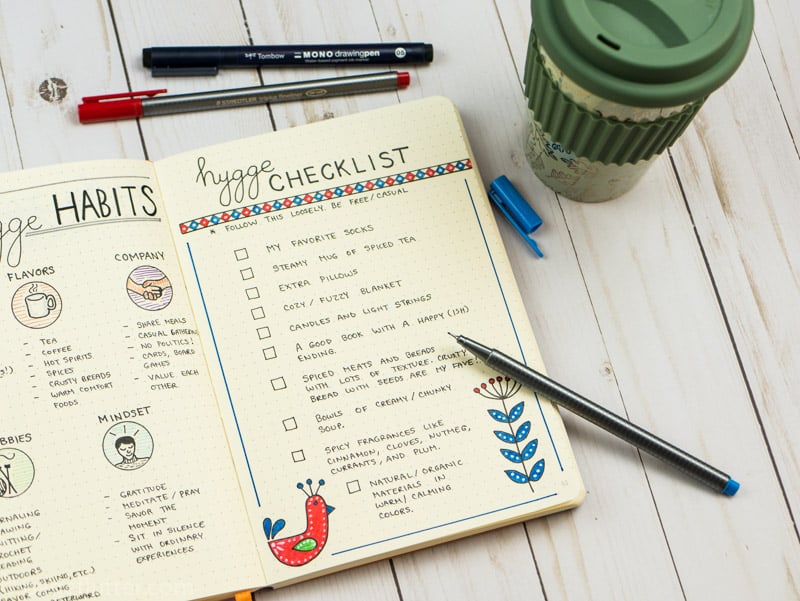 Tombow MONO drawing pen 05
STAEDTLER
HABITS
FLAVORS
- TEA
- COFFEE
- HOT SPIRITS
- SPICES
- CRUSTY BREADS
- WARM COMFORT
FOODS.
COMPANY
- SHARE MEALS
- CASUAL
- NO POLITICS!
- CARDS, BOARD
GAMES
- VALUE EACH
OTHER
MINDSET
- GRATITUDE
- MEDITATE / PRAY
- SAVOR THE
MOMENT
- SIT IN SILENCE
WITH ORDINARY
EXPERIENCES.
(HIKING, SKIING, ETC.)
COMING
hygge CHECKLIST
* FOLLOW THIS LOOSELY. BE FREE/CASUAL
MY FAVORITE SOCKS
STEAMY MUG OF SPICED TEA
EXTRA PILLOWS
COZY / FUZZY BLANKET
CANDLES AND LIGHT STRINGS
A GOOD BOOK WITH A HAPPY (ISH)
ENDING.
SPICED MEATS AND BREADS
WITH LOTS OF TEXTURE. CRUSTY
BREAD WITH SEEDS ARE MY FAVE!
BOWLS OF CREAMY / CHUNKY
SOUP.
SPICY FRAGRANCES LIKE
CINNAMON, CLOVES, NUTMEG,
CURRANTS, AND PLUM.
NATURAL / ORGANIC
MATERIALS IN
WARM / CALMING
COLORS.